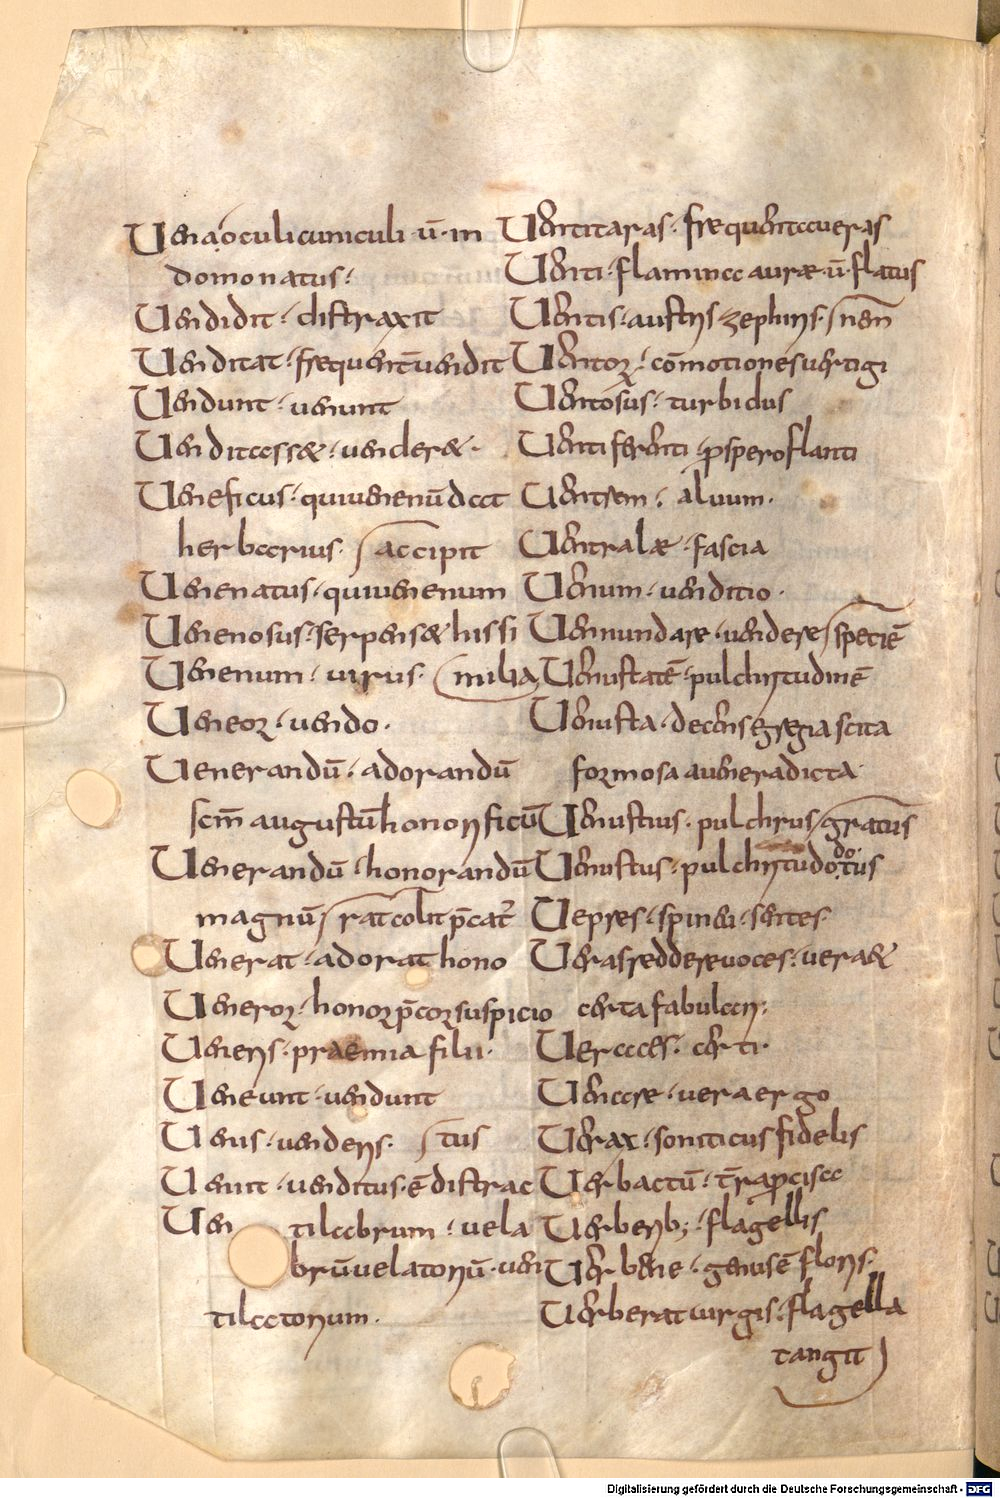 Uena oculi cuniculi · ū · in
domo natus ·
Uendidit · distraxit
Uenditat · frequent̄ uendit
Uendunt · uenunt
Uenditasse · uendere ·
Ueneficus · qui uenenū dat
herbarius · accipit
Uenenatus · qui uenenum
Uenenosus · serpens & hissi
Uenenum · uirus · milia
Ueneor · uendo ·
Uenerandū · adorandū
scm̄ augustū honorificū
Uenerandū · honorandū
magnū rat colit p̄cat᷑
Uenerat · adorat hono
Ueneror · honor p̄cor suspicio
Ueneris · praemia filii ·
Ueneunt · uendunt
Uenis · uendens · tus
Uenit · uenditus · ē distrac
Uen tilabrum · uela
brū uelatoriū · uen
tilatorium ·
Uentitaras · frequentaueras
Uenti · flamina aurae · ū · flatus
Uentis · austris · zephiris · nen̄
Uentor · cōmotiones uertigi
Uentosus · turbidus
Uenti ferenti · ꝓspero flanti
Uentrem · aluum ·
Uentrale · fascia
Uenum · uenditio ·
Uenundare · uendere speciē
Uenustatē · pulchritudinē
Uenusta · decens egregia scita
formosa a uenere dicta
Uenustius · pulchrus gratus
Uenustus · pulchritudo tus
do ·
Uepres · spinae · sentes ·
Ueras reddere uoces · uera &
certa fabulari ;
Ueraces · certi ·
Uerax · soniticus fidelis
Uerbactū · t̄ra ꝓcisa
Uerberib; · flagellis
Uerbene · genus ē floris ·
Uerberat uirgis · flagella
tangit
Digitalisierung gefördert durch die Deutsche Forschungsgemeinschaft - DFG